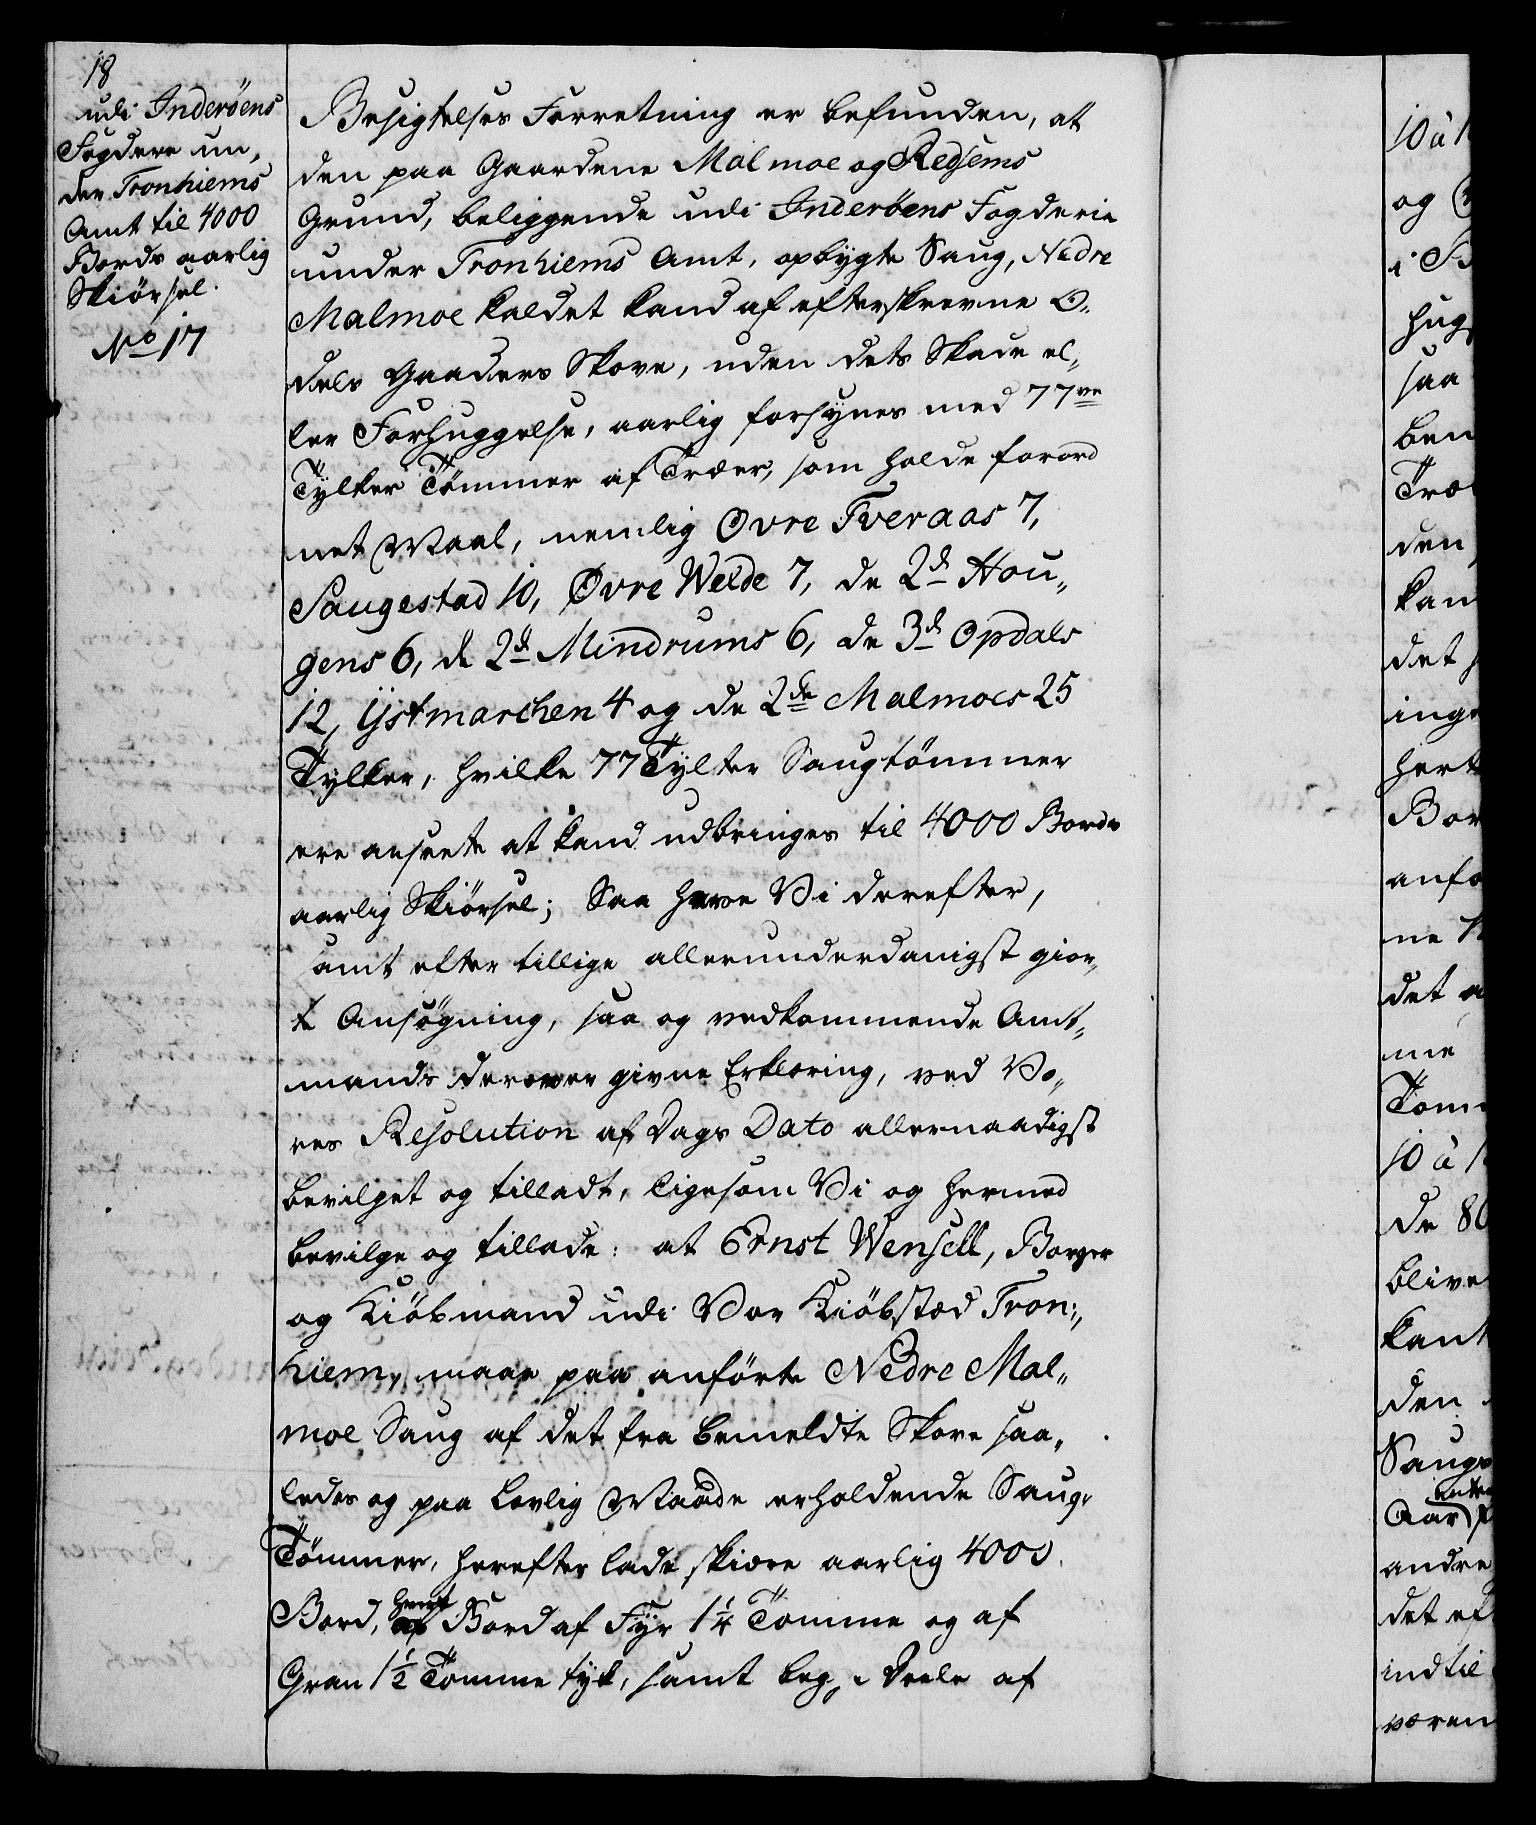 18
udi Inderöens
Fogderie un„
der Tronhiems
Amt til 4000
Bords aarlig
Skiørsel.
No 17
Besigtelses Forretning er befunden, at
den paa Gaardene Malmoe og Redsems
Grund, beliggende udi Inderöens Fogderie
under Tronhiems Amt, opbygte Saug, Nedre
Malmoe kaldet kand af efterskrevne O„
dels Gaarders Skove, uden dets Skade el„
ler Forhuggelse, aarlig forsynes med 77ve
Tylter Tömmer af Træer, som holde forord
net Maal, nemlig Ovre Tveraas 7,
Saugestad 10, Øvre Welde 7, de 2de Hou„
gens 6, de 2de Mindrums 6, de 3de Opdals
12, Ystmarchen 4 og de 2de Malmoes 25
Tylter, hvilke 77 Tylter Saugtömmer
ere anseete at kand udbringes til 4000 Bords
aarlig Skiörsel; Saa have Vi derefter,
samt efter tillige allerunderdanigst gior„
te Ansögning, saa og vedkommende Amt„
mands derover givne Erklæring, ved Vo„
res Resolution af Dags Dato allernaadigst
bevilget og tilladt, ligesom Vi og hermed
bevilge og tillade: at Ernst Wensell, Borger
og Kiöbmand udi Vor Kiöbstæd Tron„
hiem, maae paa anförte Nedre Mal„
moe Saug af det fra bemeldte Skove saa„
ledes og paa lovlig Maade erholdende Saug„
Tömmer, herefter lade skiære aarlig 4000
Bord, hvert Bord af Fyr 1¼ Tomme og af
Gran 1½ Tomme tyk, samt beg„e Deele af
10 à
og
i
hug
saa
ben
Træ
den
kan
det
inge
hert
Bor
anfø
ne
det
me
Tom
10 à
de 80
blive
kant
den
Saugs
Aar
andre
det ef
indtil
væren